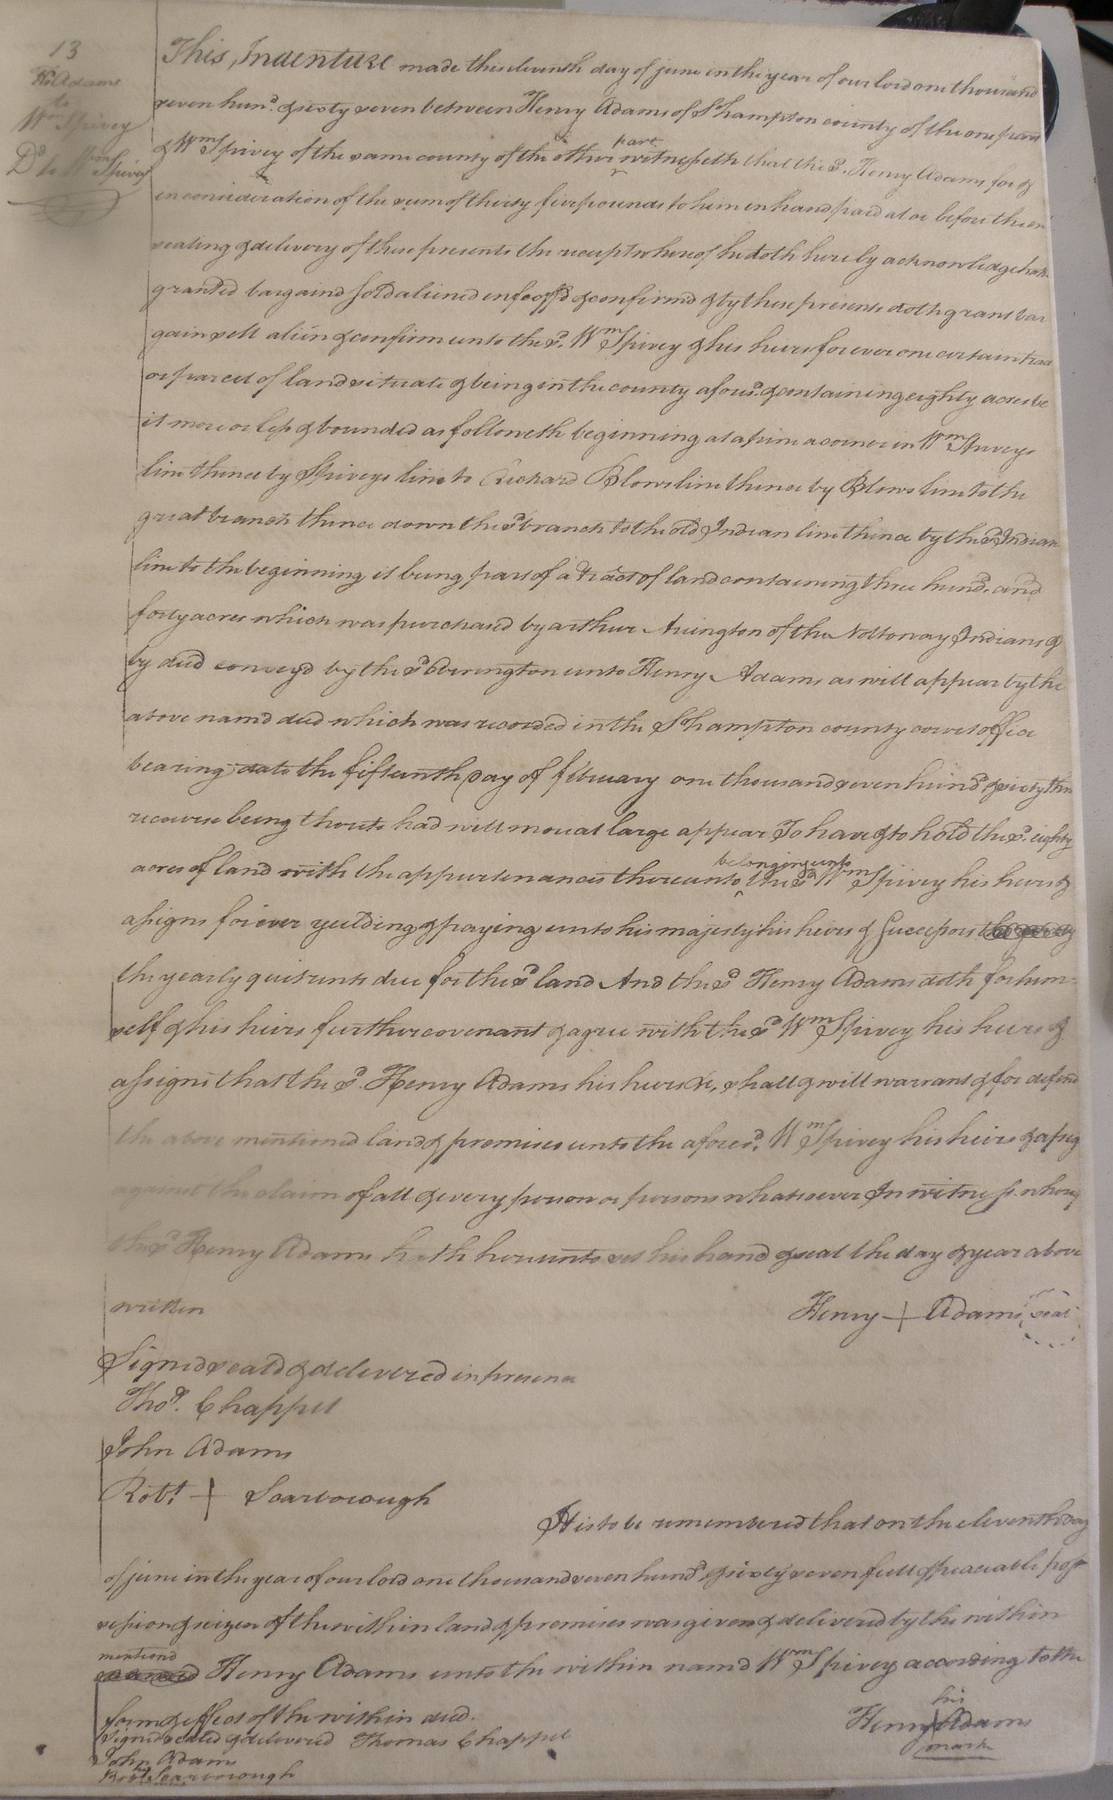 13
H. Adams
to
Wm Spivey
Dd to Wm Spivey
This Indenture made the eleventh day of june in the year of our lord one thousand
seven hund. & sixty seven between Henry Adams of S.hampton county of the one part
& Wm Spivey of the same county of the other part witnesseth that the sd. Henry Adams for &
in consideration of the sum of thirty five pounds to him in hand paid at or before the en
sealing & delivery of these presents the receipt whereof he doth hereby acknowledge hath
granted bargaind sold aliened enfeoffd & confirmd & by these presents doth grant bar
gain sell alien & confirm unto the sd. Wm Spivey & his heirs for ever one certain tract
or parcel of land situate & being in the county aforesd. & containing eighty acres be
it more or less & bounded as followeth beginning at a pine a corner in Wm Spiveys
line thence by Spiveys line to Richard Blows line thence by Blows line to the
great branch thence down the sd branch to the old Indian line thence by the sd Indian
line to the beginning it being part of a tract of land containing three hund. and
forty acres which was purchased by arthur Arington of the Nottoway Indians &
by deed conveyd by the sd Arrington unto Henry Adams as will appear by the
above namd deed which was recorded in the S.hampton county court office
bearing date the fifteenth day of february one thousand seven hund & sixty three
recourse being thereto had will more at large appear To have & to hold the sd. eighty
acres of land with the appurtenances thereunto belonging unto the sd Wm Spivey his heirs &
assigns for ever yeilding & paying unto his majesty his heirs & Successors
the yearly quitrents due for the sd land And the sd Henry Adams doth for him=
self & his heirs further covenant & agree with the sd Wm Spivey his heirs &
assigns that the sd. Henry Adams his heirs &c, shall & will warrant & for defend
the above mentioned land & premises unto the aforesd. Wm Spivey his heirs & assig
against the claim of all & every person or persons whatsoever In witness whereof
the sd Henry Adams hath hereunto set his hand & seal the day & year above
written Henry + Adams seal
Signed seald & delivered in presence
Thos. Chappel
John Adams
Robt + Scarborough
It is to be remembered that on the eleventh day
of june in the year of our lord one thousand seven hund & sixty seven full & peaceable poss
session & seizen of the within land & premises was given & delivered by the within
mentiond Henry Adams unto the within namd Wm Spivey according to the
form & effect of the within deed. his
Signed sealed & delivered Thomas Chappel Henry + Adams
John Adams mark
Robt Scarborough